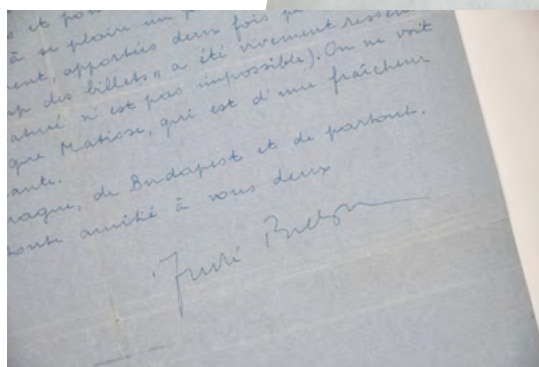 s et pon
à se plain un p
ent, apportés deux fois p
p des billets" a été vivement ressen
n'est pas impossible). On ne voit
que Matisse, qui est d'une fraîcheur
ante.
rague, de Budapest et de partout.
toute amitié à vous deux
André Breton